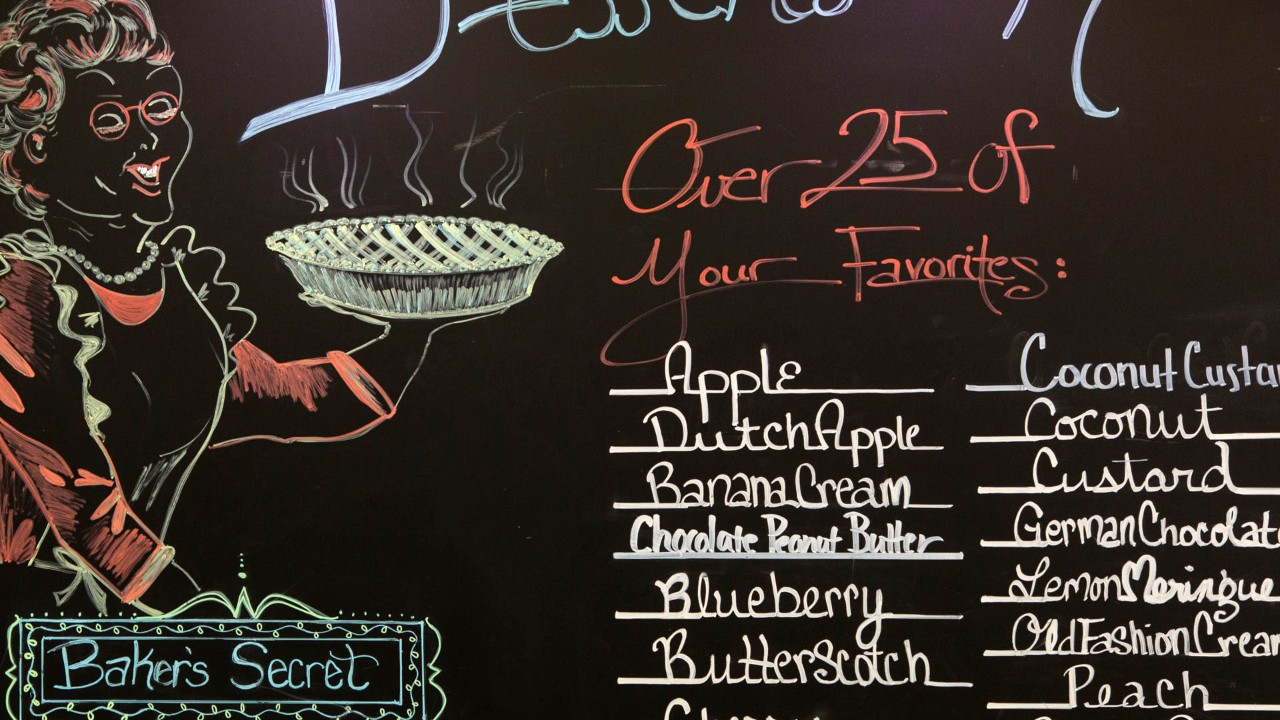 Over 25 of
Your Favorites:
Apple
Dutch Apple
Banana Cream
Chocolate Peanut Butter
Blueberry
Butterscotch
Cherry
Coconut Custar
Coconut
Custard
German Chocolate
Lemon Meringue
Old Fashion Cream
Peach
Baker's Secret